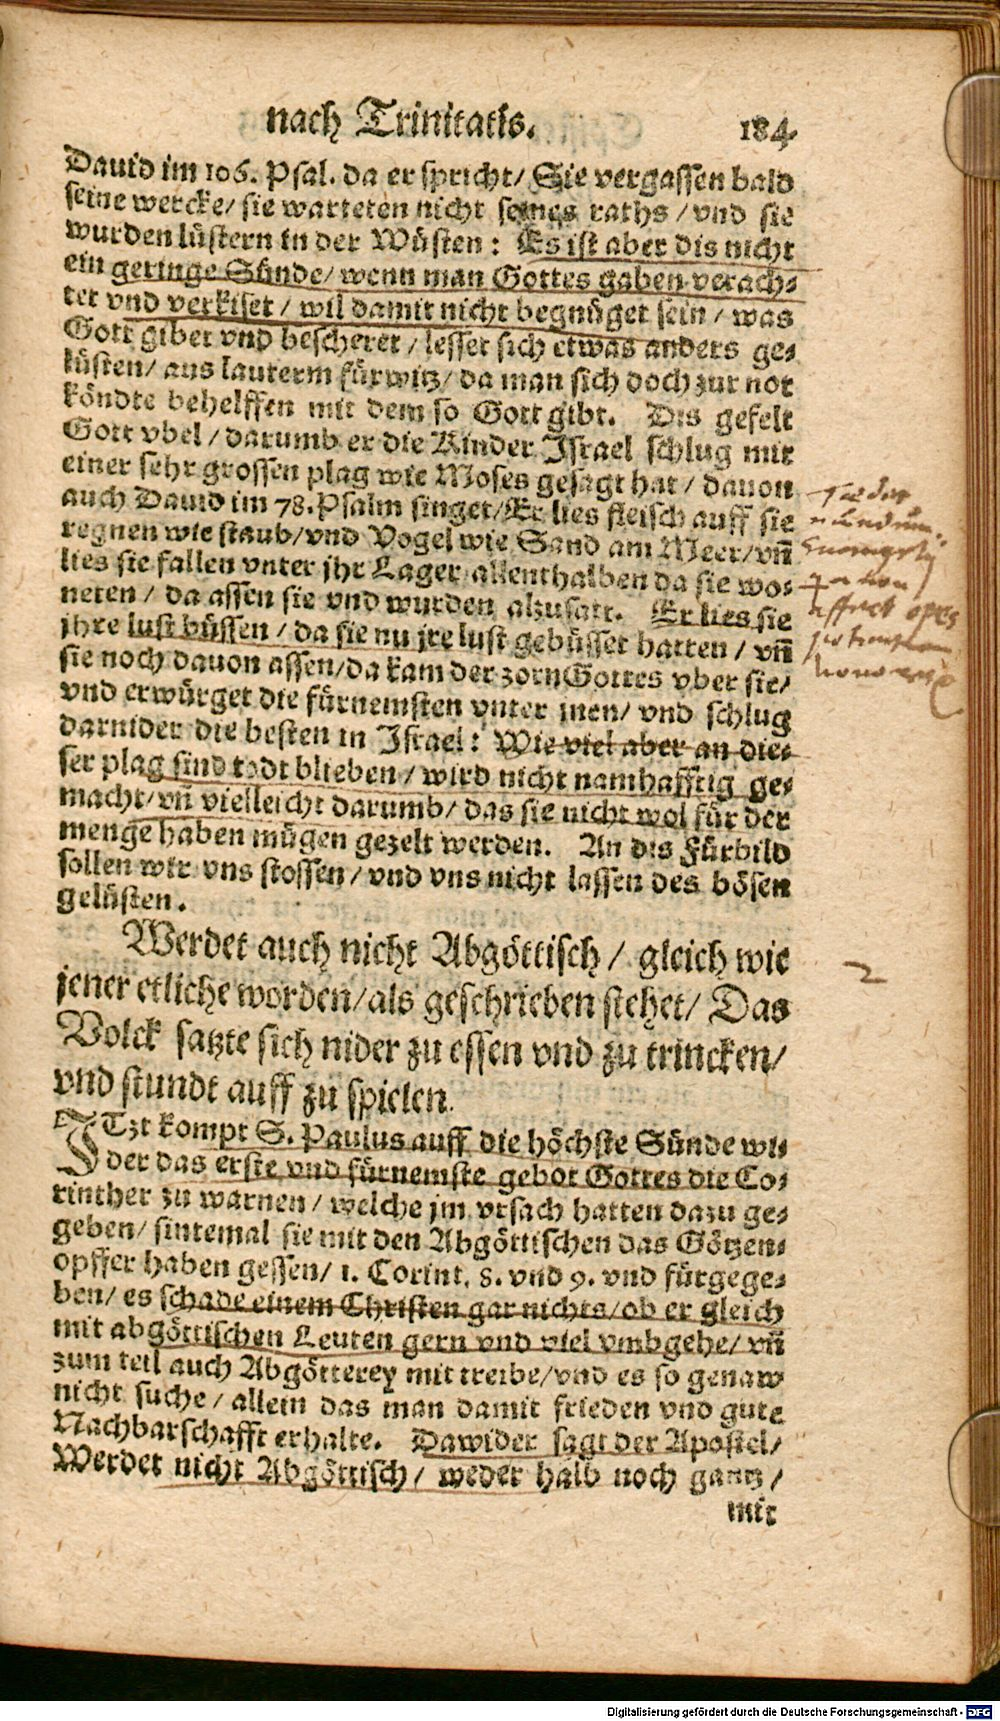 nach Trinitatis. 184.
Dauid im 106. Psal. da er spricht/ Sie vergassen bald
seine wercke/ sie warteten nicht seines raths / vnd sie
wurden lüstern in der Wüsten: Es ist aber dis nicht
ein geringe Sünde/ wenn man Gottes gaben verach-
tet vnd verkiset / wil damit nicht begnüget sein / was
Gott gibet vnd bescheret / lesset sich etwas anders ge-
lüsten/ aus lauterm fürwitz/ da man sich doch zur not
köndte behelffen mit dem so Gott gibt. Dis gefelt
Gott vbel / darumb er die Kinder Israel schlug mit
einer sehr grossen plag wie Moses gesagt hat / dauon
auch Dauid im 78. Psalm singet/ Er lies fleisch auff sie
regnen wie staub/ vnd Vogel wie Sand am Meer/ vñ
lies sie fallen vnter jhr Lager allenthalben da sie wo-
neten / da assen sie vnd wurden alzusatt. Er lies sie
jhre lust büssen / da sie nu jre lust gebüsset hatten / vñ
sie noch dauon assen/ da kam der zorn Gottes vber sie/
vnd erwürget die fürnemsten vnter jnen/ vnd schlug
darnider die besten in Israel: Wie viel aber an die-
ser plag sind todt blieben / wird nicht namhafftig ge-
macht/ vñ vielleicht darumb/ das sie nicht wol für der
menge haben mügen gezelt werden. An dis Fürbild
sollen wir vns stossen / vnd vns nicht lassen des bösen
gelüsten.
Werdet auch nicht Abgöttisch / gleich wie
jener etliche worden/ als geschrieben stehet/ Das
Volck satzte sich nider zu essen vnd zu trincken/
vnd stundt auff zu spielen.
ITzt kompt S. Paulus auff die höchste Sünde wi-
der das erste vnd fürnemste gebot Gottes die Co-
rinther zu warnen / welche jm vrsach hatten dazu ge-
geben/ sintemal sie mit den Abgöttischen das Götzen-
opffer haben gessen/ 1. Corint. 8. vnd 9. vnd fürgege-
ben/ es schade einem Christen gar nichts/ ob er gleich
mit abgöttischen Leuten gern vnd viel vmbgehe/ vñ
zum teil auch Abgötterey mit treibe/ vnd es so genaw
nicht suche / allein das man damit frieden vnd gute
Nachbarschafft erhalte. Dawider sagt der Apostel/
Werdet nicht Abgöttisch / weder halb noch gantz /
mit
2
Digitalisierung gefördert durch die Deutsche Forschungsgemeinschaft - DFG